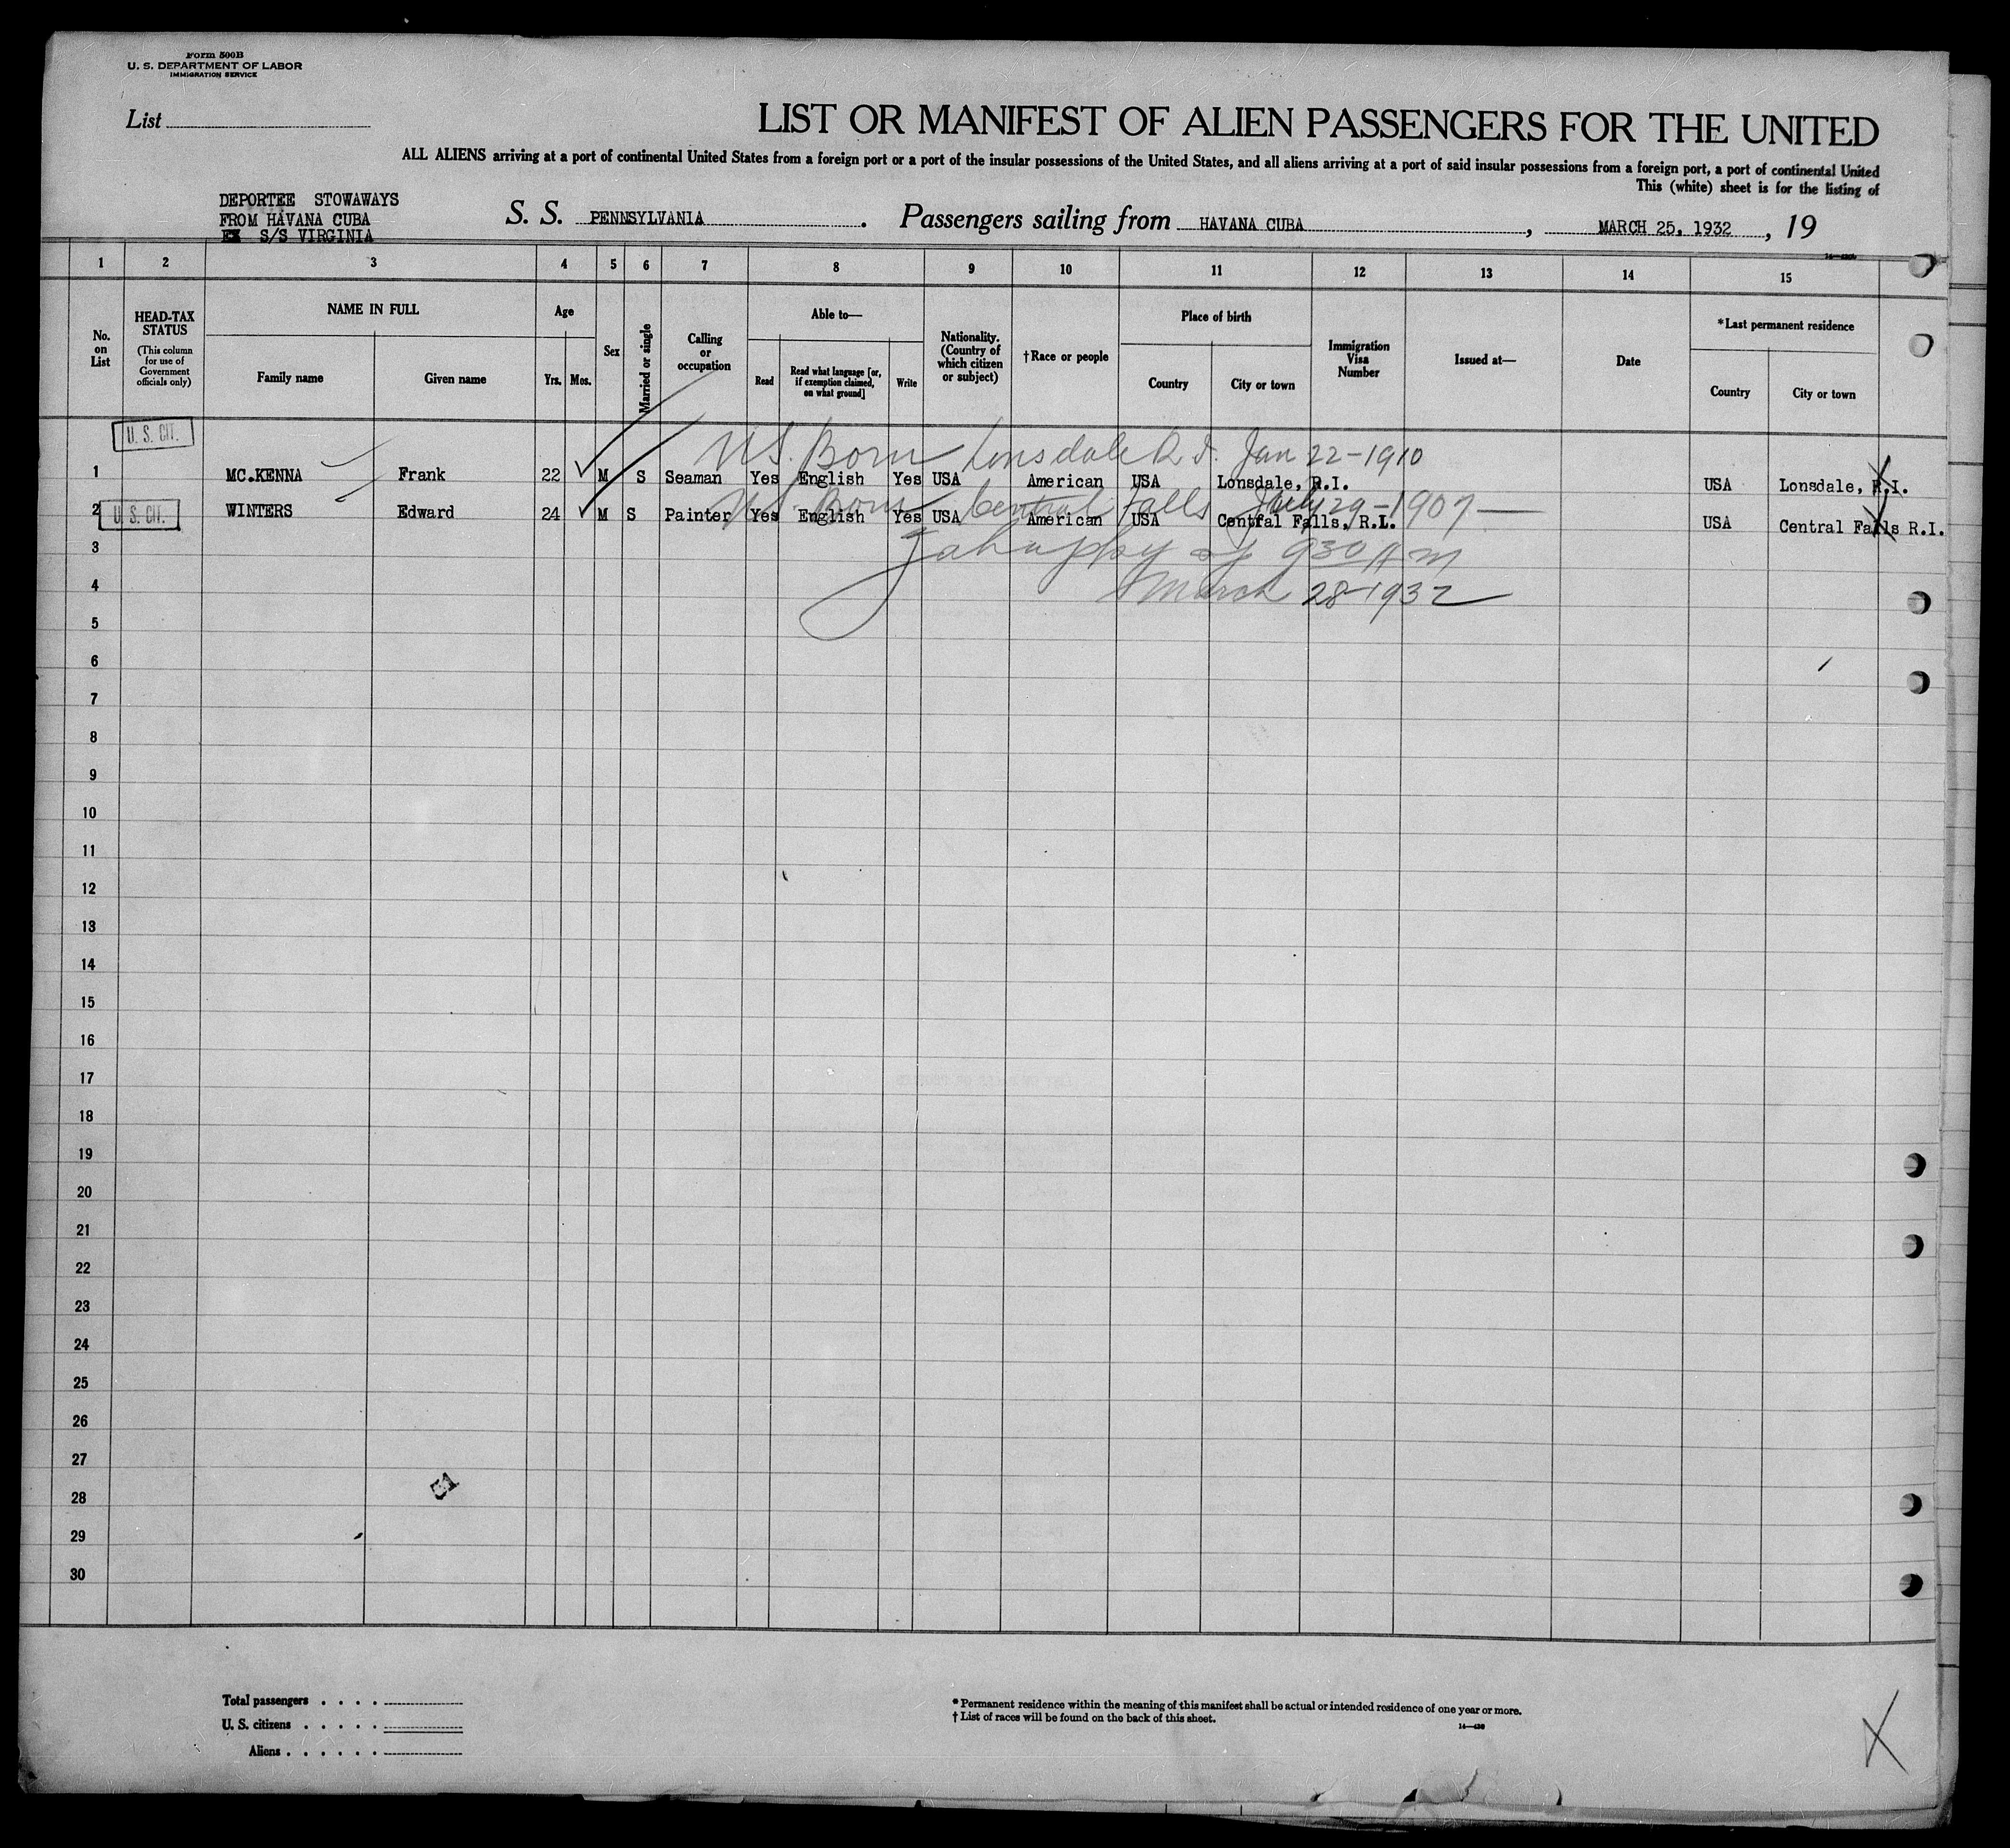 Form 500B
U. S. DEPARTMENT OF LABOR
IMMIGRATION SERVICE
List
LIST OR MANIFEST OF ALIEN PASSENGERS FOR THE UNITED
ALL ALIENS arriving at a port of continental United States from a foreign port or a port of the insular possessions of the United States, and all aliens arriving at a port of said insular possessions from a foreign port, a port of continental United
This (white) sheet is for the listing of
DEPORTEE STOWAWAYS
FROM HAVANA CUBA
EX S/S VIRGINIA
S. S. PENNSYLVANIA. Passengers sailing from HAVANA CUBA, MARCH 25, 1932, 19
1 2 3 4 5 6 7 8 9 10 11 12 13 14 15
No. on List
HEAD-TAX STATUS
(This column for use of Government officials only)
NAME IN FULL
Family name
Given name
Age
Yrs. Mos.
Sex
Married or single
Calling or occupation
Able to—
Read
Read what language [or, if exemption claimed, on what ground]
Write
Nationality. (Country of which citizen or subject)
†Race or people
Place of birth
Country
City or town
Immigration Visa Number
Issued at—
Date
*Last permanent residence
Country
City or town
U. S. CIT.
US. Born Lonsdale R.I. Jan 22-1910
1 MC.KENNA Frank 22 M S Seaman Yes English Yes USA American USA Lonsdale, R.I. USA Lonsdale, R.I.
US. Born Central Falls July 29-1907
2 U. S. CIT. WINTERS Edward 24 M S Painter Yes English Yes USA American USA Central Falls, R.I. USA Central Falls R.I.
3
930 AM
4
March 28-1932
5
6
7
8
9
10
11
12
13
14
15
16
17
18
19
20
21
22
23
24
25
26
27
51
28
29
30
Total passengers . . . .
U. S. citizens . . . . .
Aliens . . . . . .
* Permanent residence within the meaning of this manifest shall be actual or intended residence of one year or more.
† List of races will be found on the back of this sheet.
X